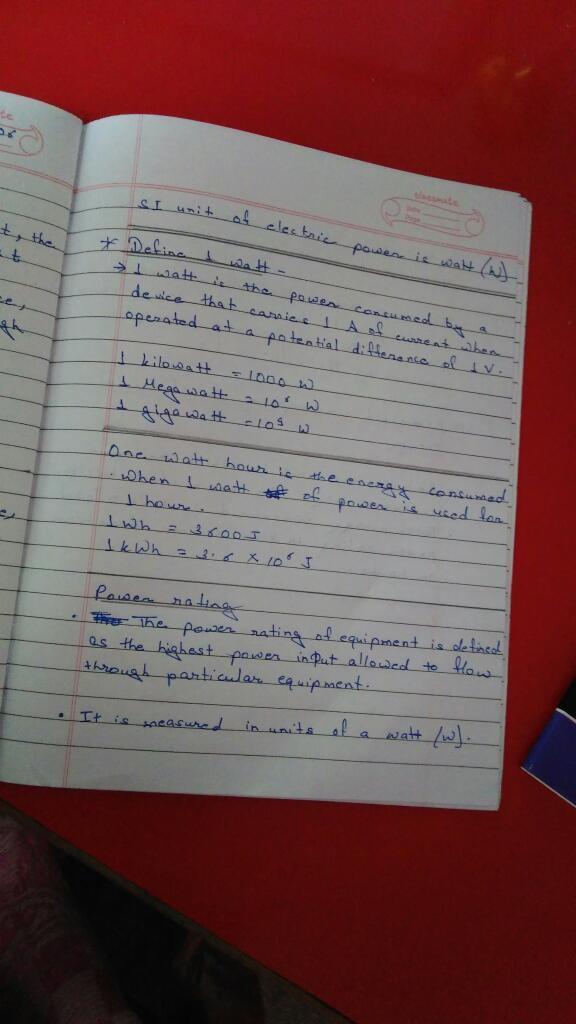 classmate
Date
Page
SI unit of electric power is watt (W)
* Define 1 watt -
→ 1 watt is the power consumed by a
device that carries 1 A of current when
operated at a potential difference of 1 V.
1 kilowatt = 1000 W
1 Megawatt = 10⁶ W
1 gigawatt = 10⁹ W
One watt hour is the energy consumed
when 1 watt of power is used for
1 hour.
1 Wh = 3600 J
1 kWh = 3.6 × 10⁶ J
Power rating
• The power rating of equipment is defined
as the highest power input allowed to flow
through particular equipment.
• It is measured in units of a watt (W).
t, the